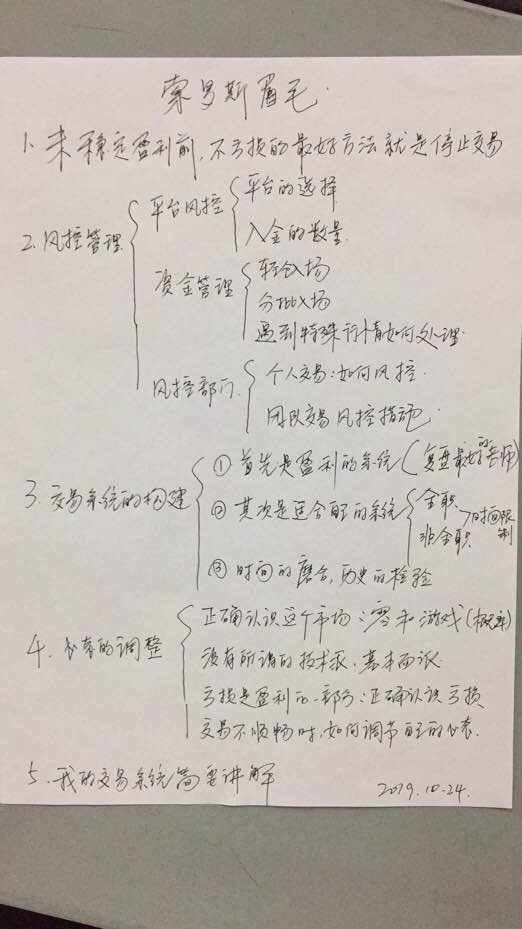 索罗斯眉毛
1. 未稳定盈利前，不亏损的最好方法就是停止交易
2. 风控管理
平台风控
平台的选择
入金的数量
资金管理
轻仓入场
分批入场
遇到特殊行情如何处理
风控部门
个人交易：如何风控
团队交易风控措施
3. 交易系统的构建
① 首先是盈利的系统（复盘最好的老师）
② 其次是适合自己的系统
全职
非全职
时间限制
③ 时间的磨合，历史的检验
4. 心态的调整
正确认识这个市场：零和游戏（概率）
没有所谓的技术派、基本面派
亏损是盈利的一部分：正确认识亏损
交易不顺畅时，如何调节自己的心态
5. 我的交易系统简要讲解
2019.10.24.